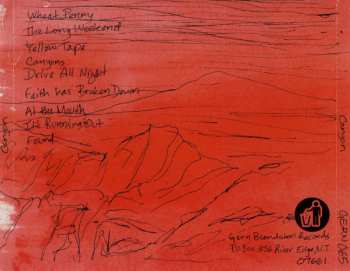 Wheat Penny
The Long Weekend
Yellow Tape
Canyons
Drive All Night
Faith Has Broken Down
At the Mouth
It's Running Out
Found
Canyon
Canyon
GERN 065
Gern Blandsten Records
P.O Box 356 River Edge N.J
07661